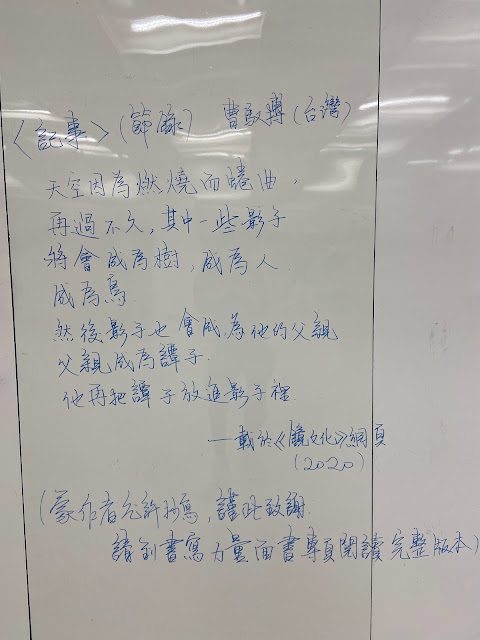 〈記事〉(節錄) 曹馭博(台灣)
天空因為燃燒而蜷曲,
再過不久,其中一些影子
將會成為樹,成為人
成為鳥.
然後影子也會成為他的父親
父親成為譚子.
他再把譚子放進影子裡.
—載於《鏡文化》網頁
(2020)
(蒙作者允許抄寫,謹此致謝.
請到書寫力量面書專頁閱讀完整版本)